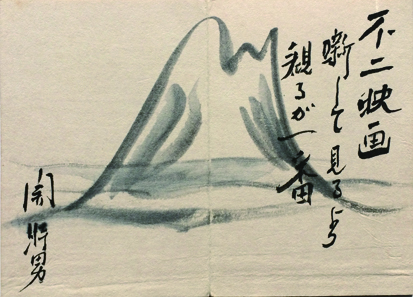 不二映画
噺して見るよう
観るが一番
関時男